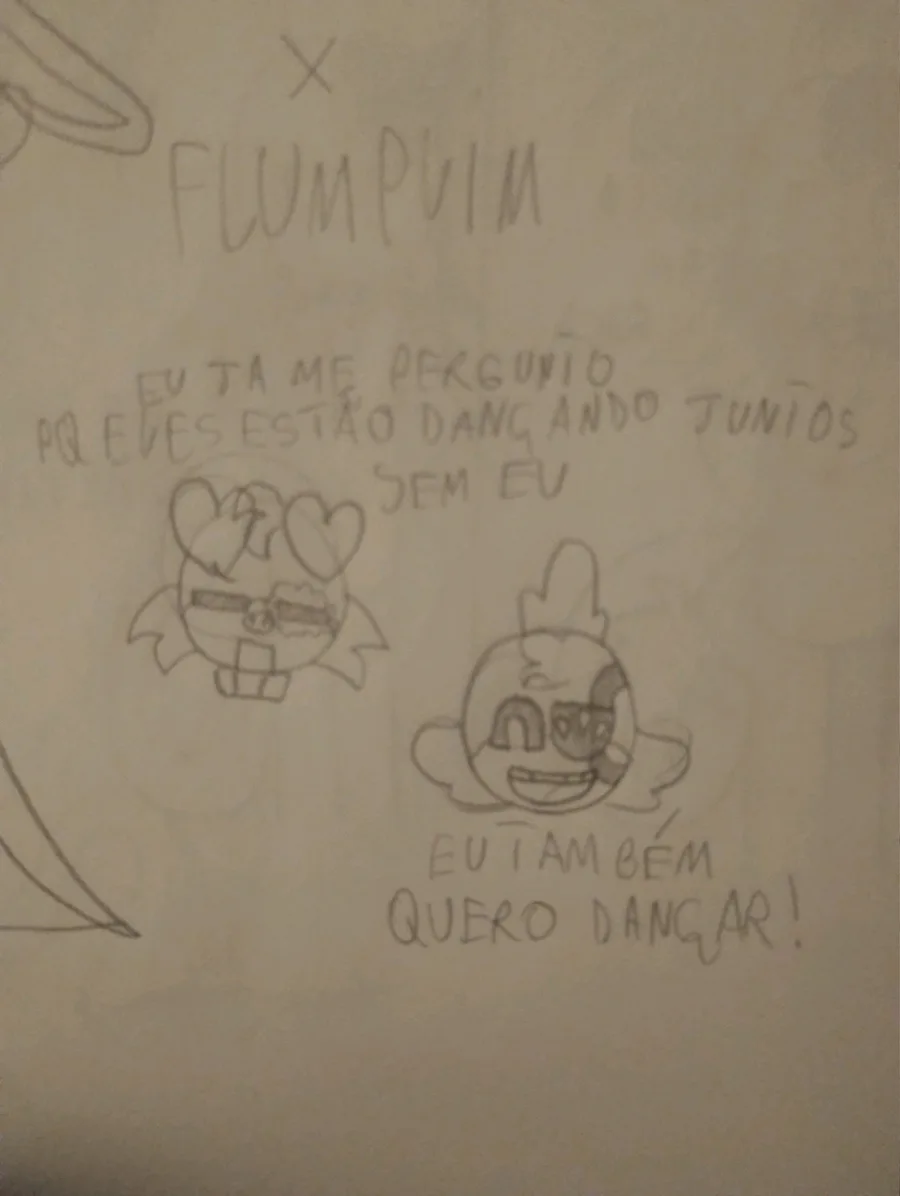 X
FLUMPUIM
EU TA ME PERGUNTO
PQ ELES ESTÃO DANÇANDO JUNTOS
SEM EU
EU TAMBÉM
QUERO DANÇAR!